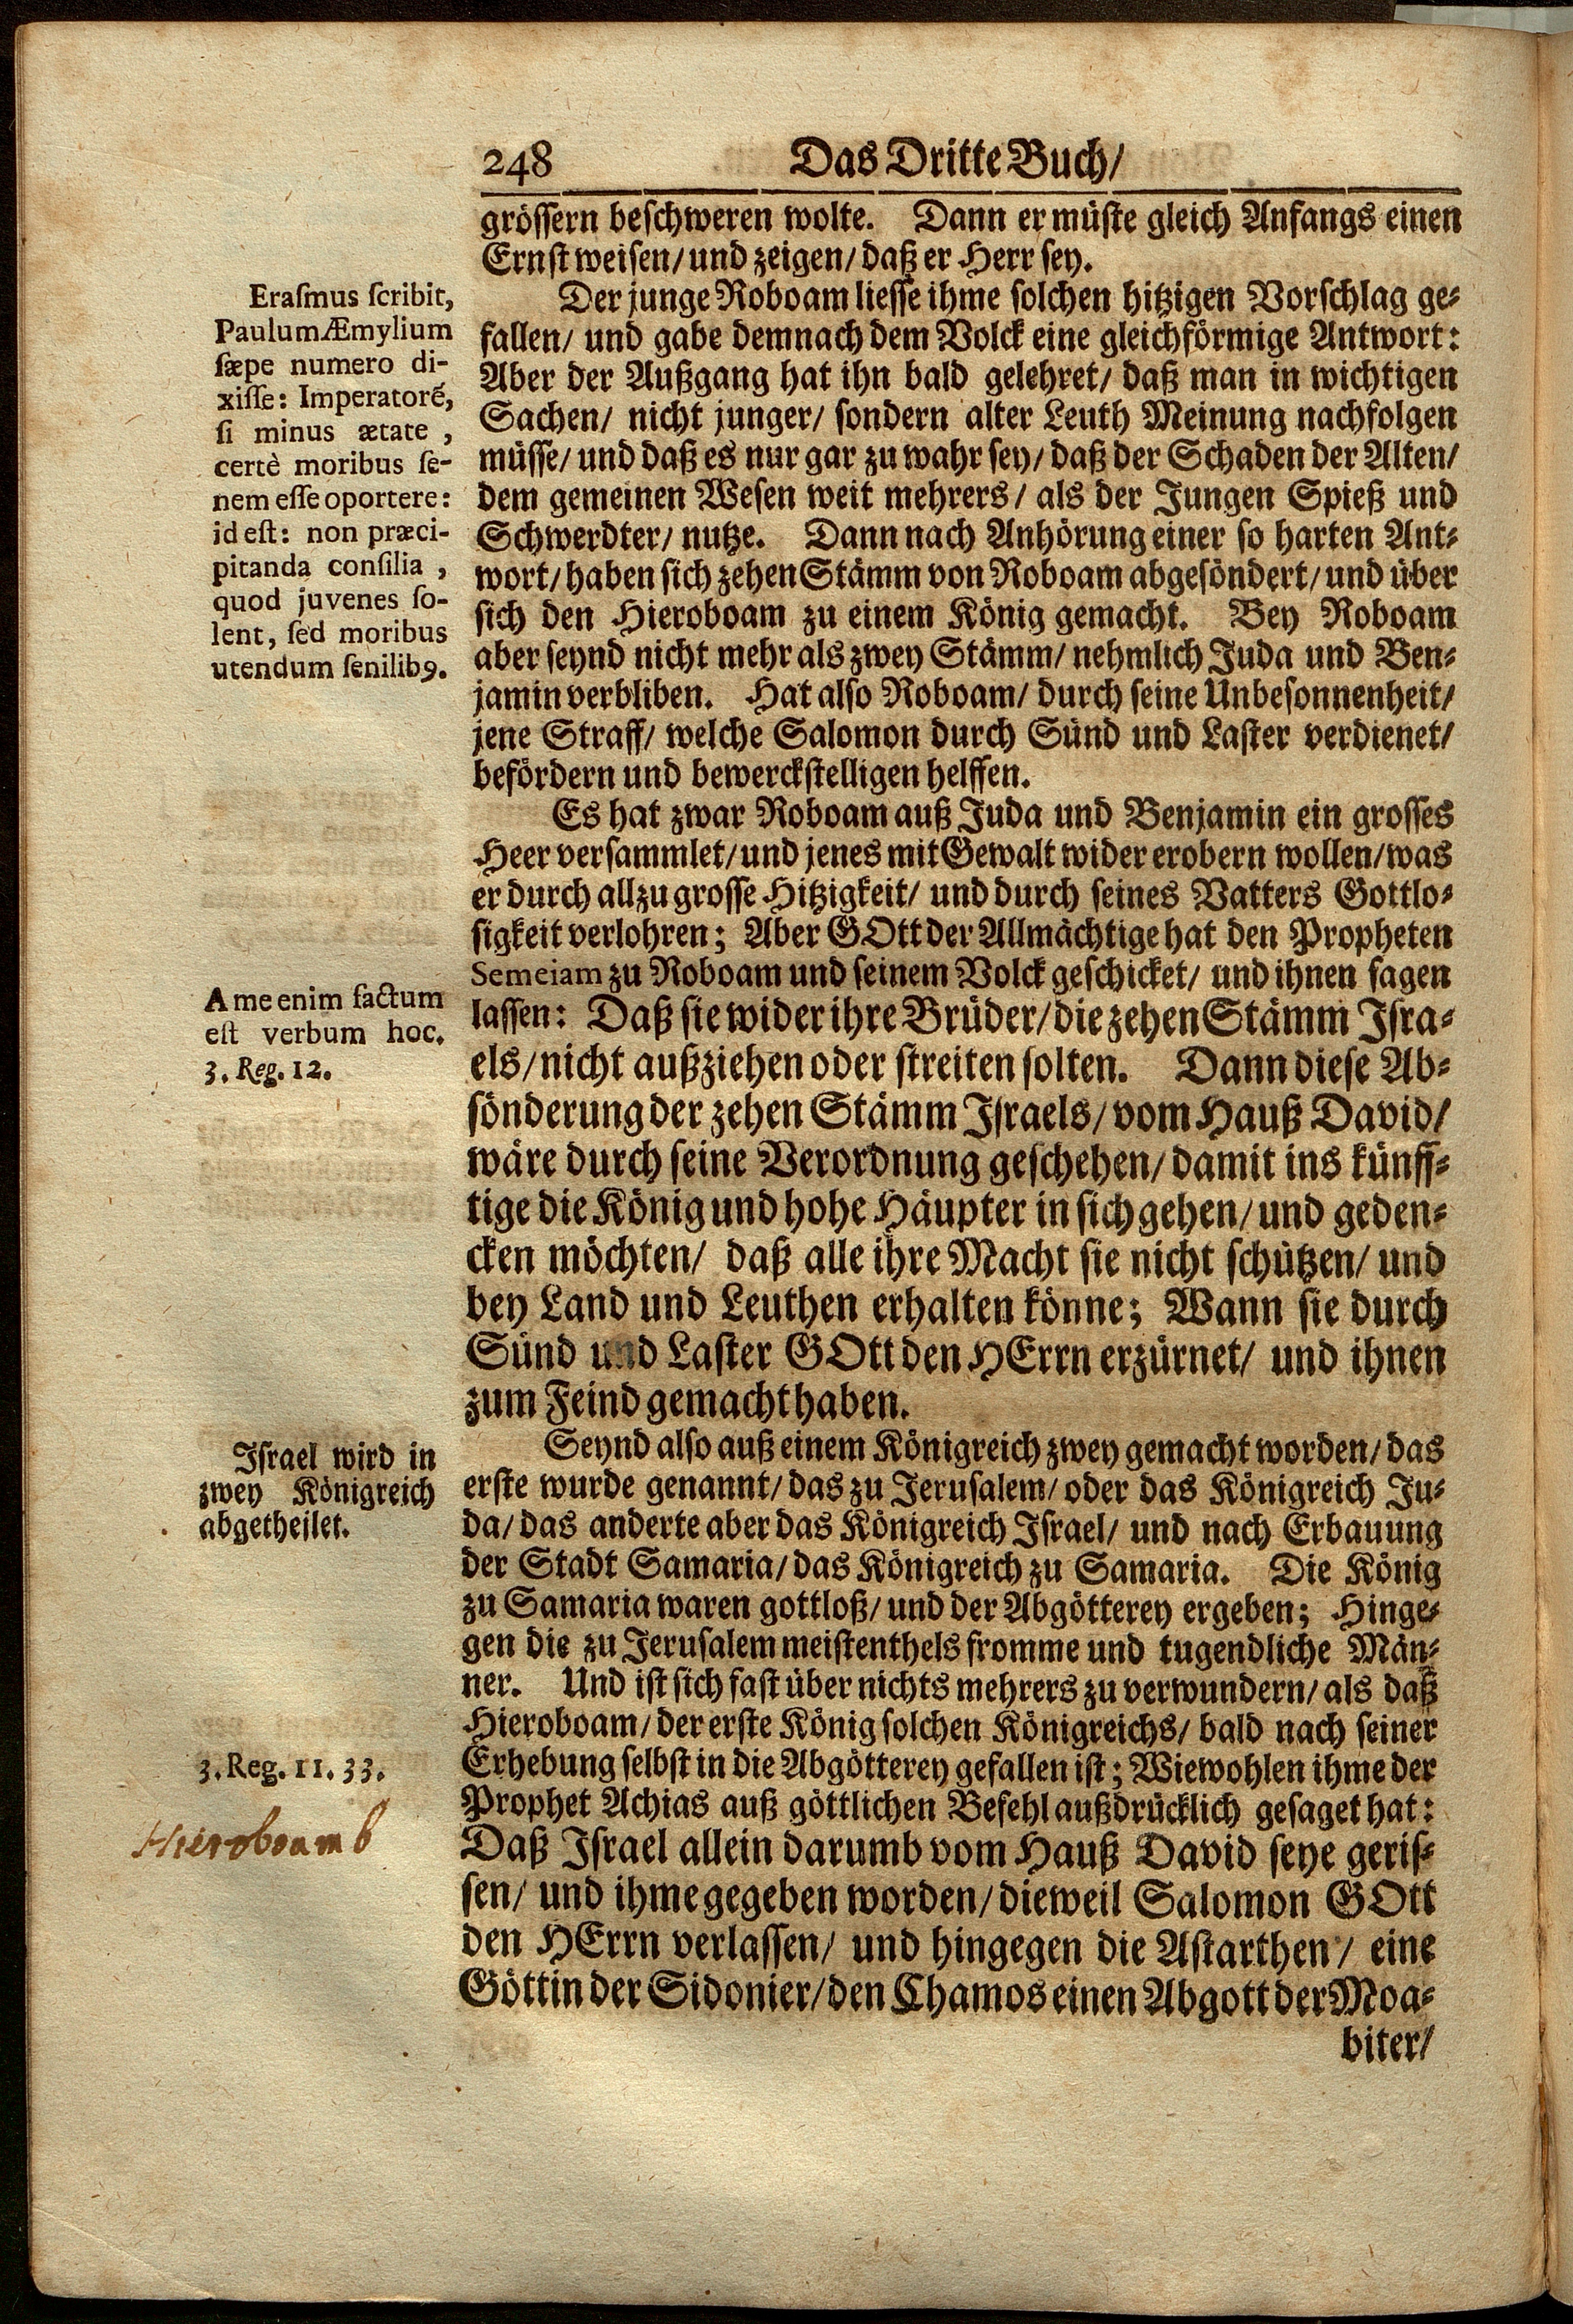 248 Das Dritte Buch/
grössern beschweren wolte. Dann er müste gleich Anfangs einen
Ernst weisen/ und zeigen/ daß er Herr sey.
Der junge Roboam liesse ihme solchen hitzigen Vorschlag ge-
fallen/ und gabe demnach dem Volck eine gleichförmige Antwort:
Aber der Außgang hat ihn bald gelehret/ daß man in wichtigen
Sachen/ nicht junger/ sondern alter Leuth Meinung nachfolgen
müsse/ und daß es nur gar zu wahr sey/ daß der Schaden der Alten/
dem gemeinen Wesen weit mehrers/ als der Jungen Spieß und
Schwerdter/ nutze. Dann nach Anhörung einer so harten Ant-
wort/ haben sich zehen Stämm von Roboam abgesöndert/ und über
sich den Hieroboam zu einem König gemacht. Bey Roboam
aber seynd nicht mehr als zwey Stämm/ nehmlich Juda und Ben-
jamin verbliben. Hat also Roboam/ durch seine Unbesonnenheit/
jene Straff/ welche Salomon durch Sünd und Laster verdienet/
befördern und bewerckstelligen helffen.
Erasmus scribit,
Paulum Æmylium
sæpe numero di-
xisse: Imperatorē,
si minus ætate,
certè moribus se-
nem esse oportere:
id est: non præci-
pitanda consilia,
quod juvenes so-
lent, sed moribus
utendum senilibꝰ.
Es hat zwar Roboam auß Juda und Benjamin ein grosses
Heer versammlet/ und jenes mit Gewalt wider erobern wollen/ was
er durch allzu grosse Hitzigkeit/ und durch seines Vatters Gottlo-
sigkeit verlohren; Aber GOtt der Allmächtige hat den Propheten
Semeiam zu Roboam und seinem Volck geschicket/ und ihnen sagen
lassen: Daß sie wider ihre Brüder/ die zehen Stämm Isra-
els/ nicht außziehen oder streiten solten. Dann diese Ab-
sönderung der zehen Stämm Israels/ vom Hauß David/
wäre durch seine Verordnung geschehen/ damit ins künff-
tige die König und hohe Häupter in sich gehen/ und geden-
cken möchten/ daß alle ihre Macht sie nicht schützen/ und
bey Land und Leuthen erhalten könne; Wann sie durch
Sünd und Laster GOtt den HErrn erzürnet/ und ihnen
zum Feind gemacht haben.
A me enim factum
est verbum hoc.
3. Reg. 12.
Seynd also auß einem Königreich zwey gemacht worden/ das
erste wurde genannt/ das zu Jerusalem/ oder das Königreich Ju-
da/ das anderte aber das Königreich Israel/ und nach Erbauung
der Stadt Samaria/ das Königreich zu Samaria. Die König
zu Samaria waren gottloß/ und der Abgötterey ergeben; Hinge-
gen die zu Jerusalem meistenthels fromme und tugendliche Män-
ner. Und ist sich fast über nichts mehrers zu verwundern/ als daß
Hieroboam/ der erste König solchen Königreichs/ bald nach seiner
Erhebung selbst in die Abgötterey gefallen ist; Wiewohlen ihme der
Prophet Achias auß göttlichen Befehl außdrücklich gesaget hat:
Daß Israel allein darumb vom Hauß David seye geris-
sen/ und ihme gegeben worden/ dieweil Salomon GOtt
den HErrn verlassen/ und hingegen die Astarthen/ eine
Göttin der Sidonier/ den Chamos einen Abgott der Moa-
biter/
Israel wird in
zwey Königreich
abgetheilet.
3. Reg. 11. 33.
Hieroboam b